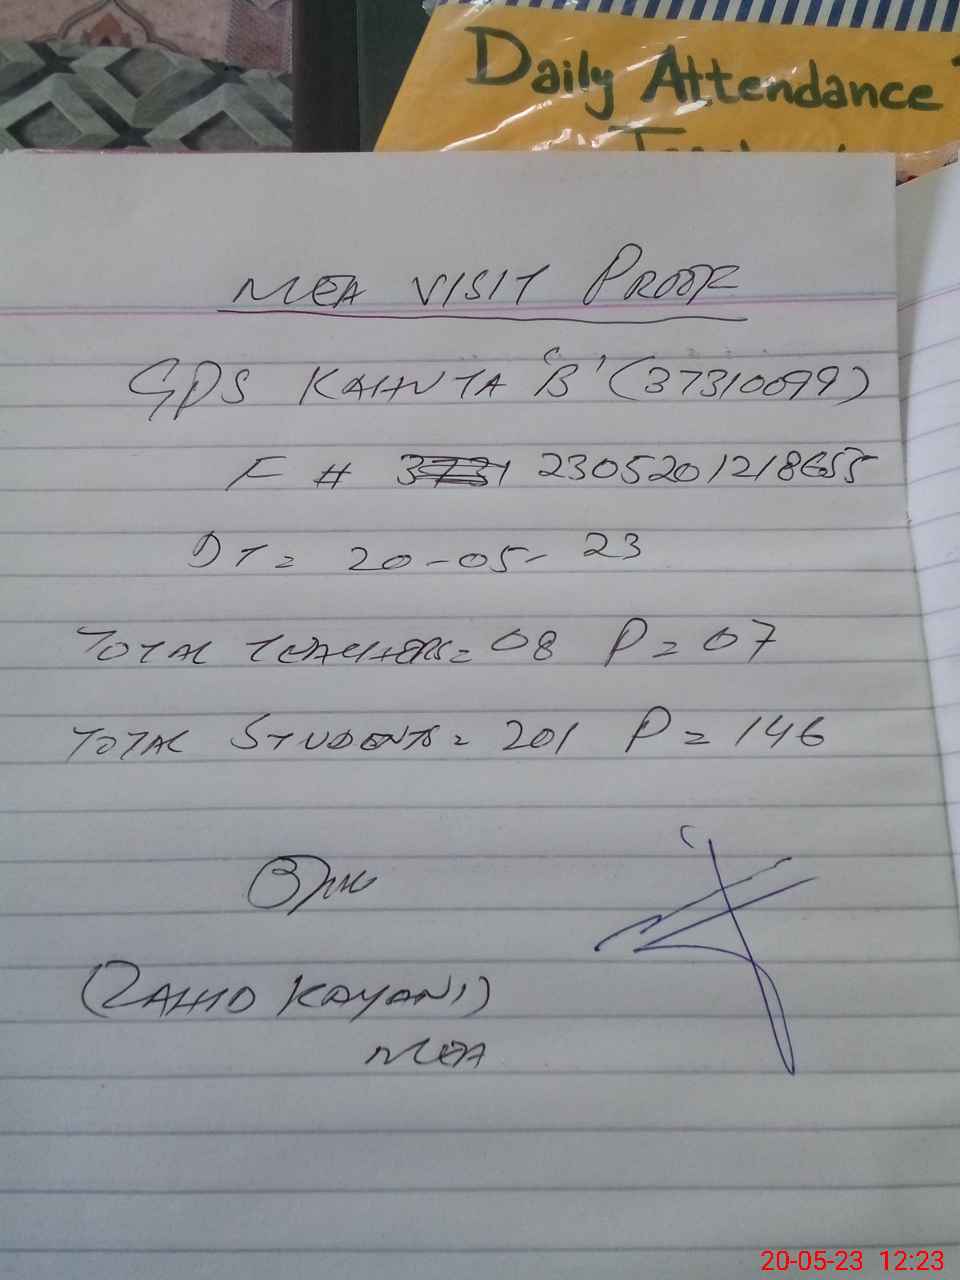 Daily Attendance
MEA VISIT PROOF
GPS KAHNTA 'B' (37310099)
F # 2305201218655
DT = 20-05-23
TOTAL TEACHERS = 08 P = 07
TOTAL STUDENTS = 201 P = 146
(ZAHID KAYANI)
MEA
20-05-23 12:23